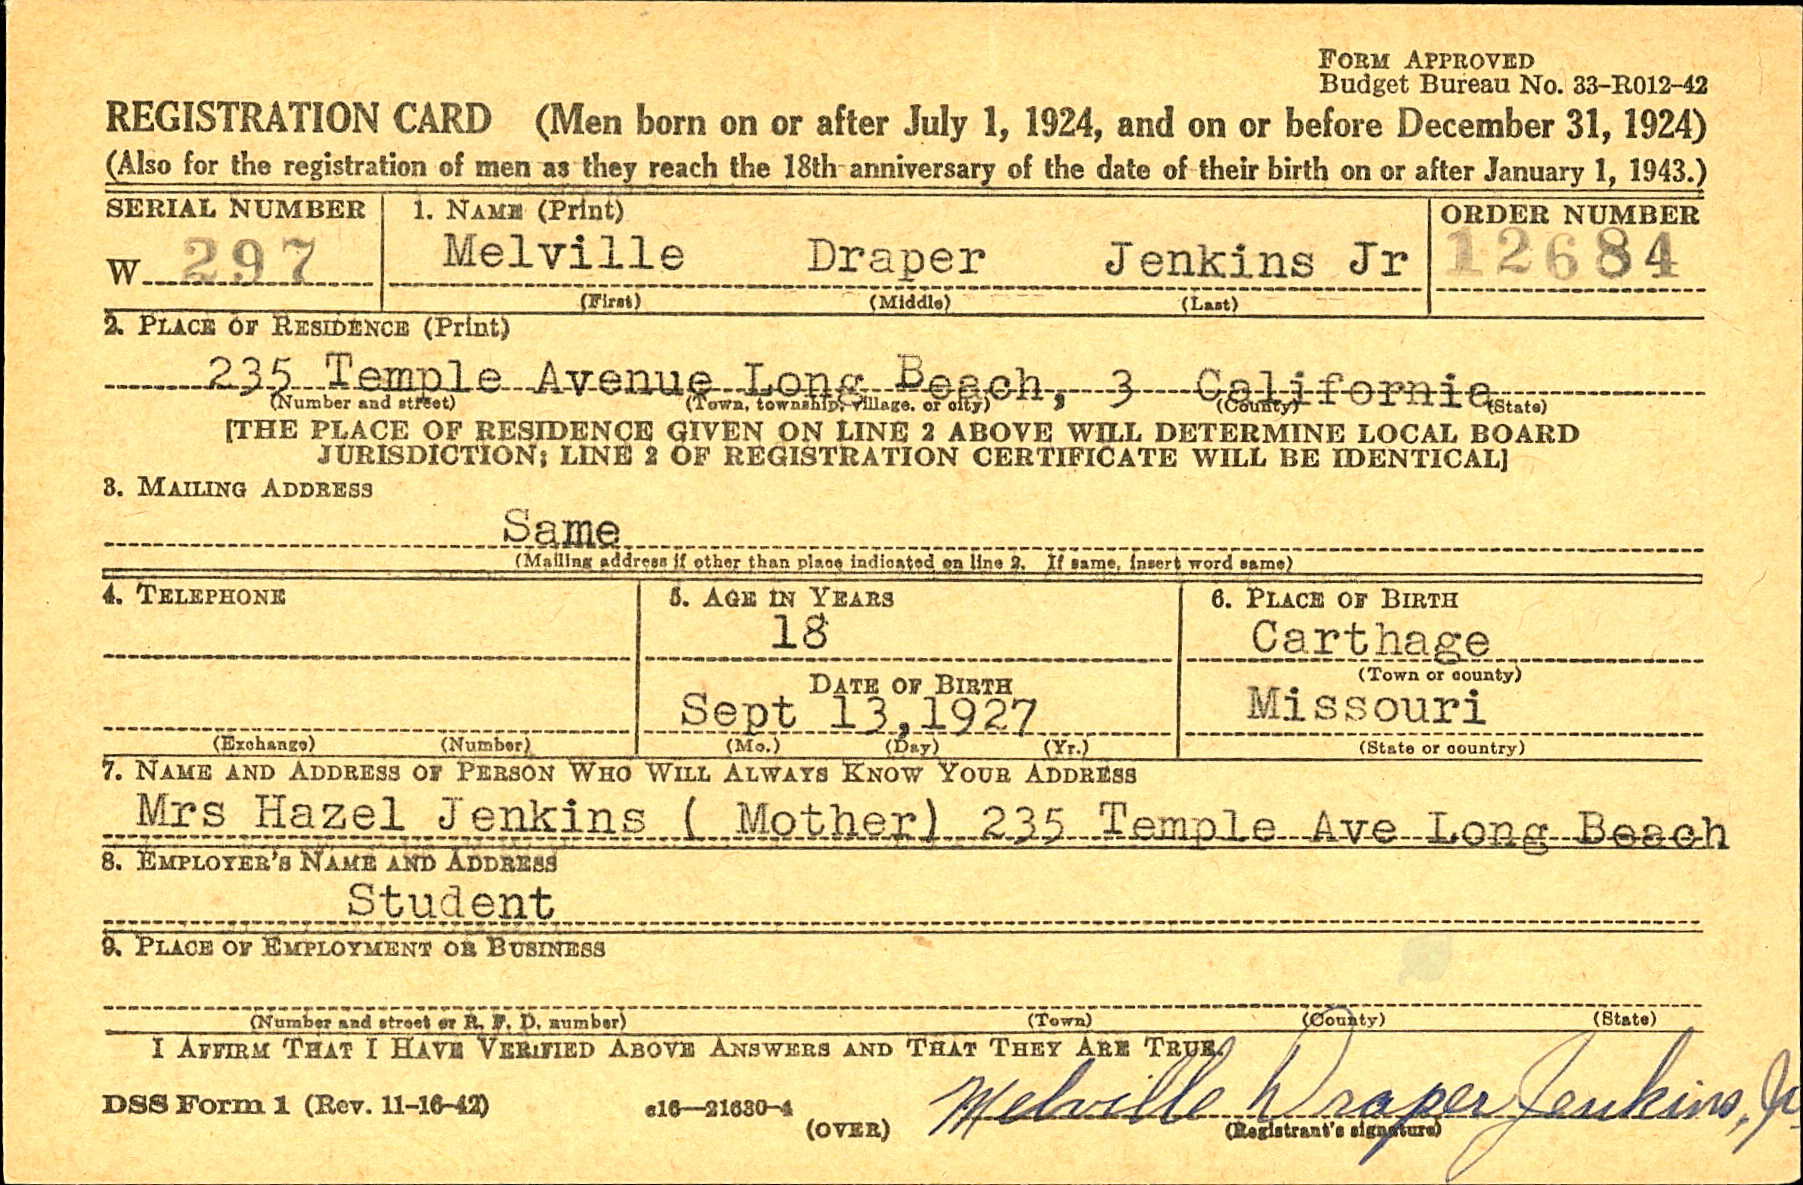 FORM APPROVED
Budget Bureau No. 33-R012-42
REGISTRATION CARD (Men born on or after July 1, 1924, and on or before December 31, 1924)
(Also for the registration of men as they reach the 18th anniversary of the date of their birth on or after January 1, 1943.)
SERIAL NUMBER 1. NAME (Print) ORDER NUMBER
W 297 Melville Draper Jenkins Jr 12684
(First) (Middle) (Last)
2. PLACE OF RESIDENCE (Print)
235 Temple Avenue Long Beach, 3 California
(Number and street) (Town, township, village, or city) (County) (State)
[THE PLACE OF RESIDENCE GIVEN ON LINE 2 ABOVE WILL DETERMINE LOCAL BOARD
JURISDICTION; LINE 2 OF REGISTRATION CERTIFICATE WILL BE IDENTICAL]
3. MAILING ADDRESS
Same
(Mailing address if other than place indicated on line 2. If same, insert word same)
4. TELEPHONE 5. AGE IN YEARS 6. PLACE OF BIRTH
18 Carthage
(Town or county)
DATE OF BIRTH
Sept 13,1927 Missouri
(Exchange) (Number) (Mo.) (Day) (Yr.) (State or country)
7. NAME AND ADDRESS OF PERSON WHO WILL ALWAYS KNOW YOUR ADDRESS
Mrs Hazel Jenkins ( Mother) 235 Temple Ave Long Beach
8. EMPLOYER'S NAME AND ADDRESS
Student
9. PLACE OF EMPLOYMENT OR BUSINESS
(Number and street or R. F. D. number) (Town) (County) (State)
I AFFIRM THAT I HAVE VERIFIED ABOVE ANSWERS AND THAT THEY ARE TRUE.
DSS Form 1 (Rev. 11-16-42) c16—21630-4 (OVER) Melville Draper Jenkins, Jr.
(Registrant's signature)